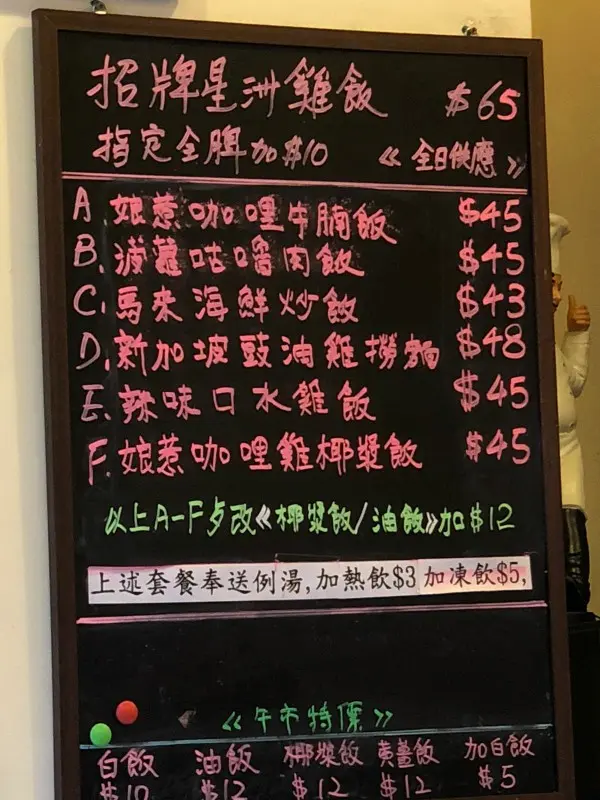 招牌星洲雞飯 $65
指定全脾加$10 《全日供應》
A 娘惹咖哩牛腩飯 $45
B. 菠蘿咕嚕肉飯 $45
C. 馬來海鮮炒飯 $43
D. 新加坡豉油雞撈麵 $48
E. 辣味口水雞飯 $45
F. 娘惹咖哩雞椰漿飯 $45
以上A-F歩改《椰漿飯/油飯》加$12
上述套餐奉送例湯,加熱飲$3 加凍飲$5,
《午市特價》
白飯 油飯 椰漿飯 黃薑飯 加白飯
$10 $12 $12 $12 $5